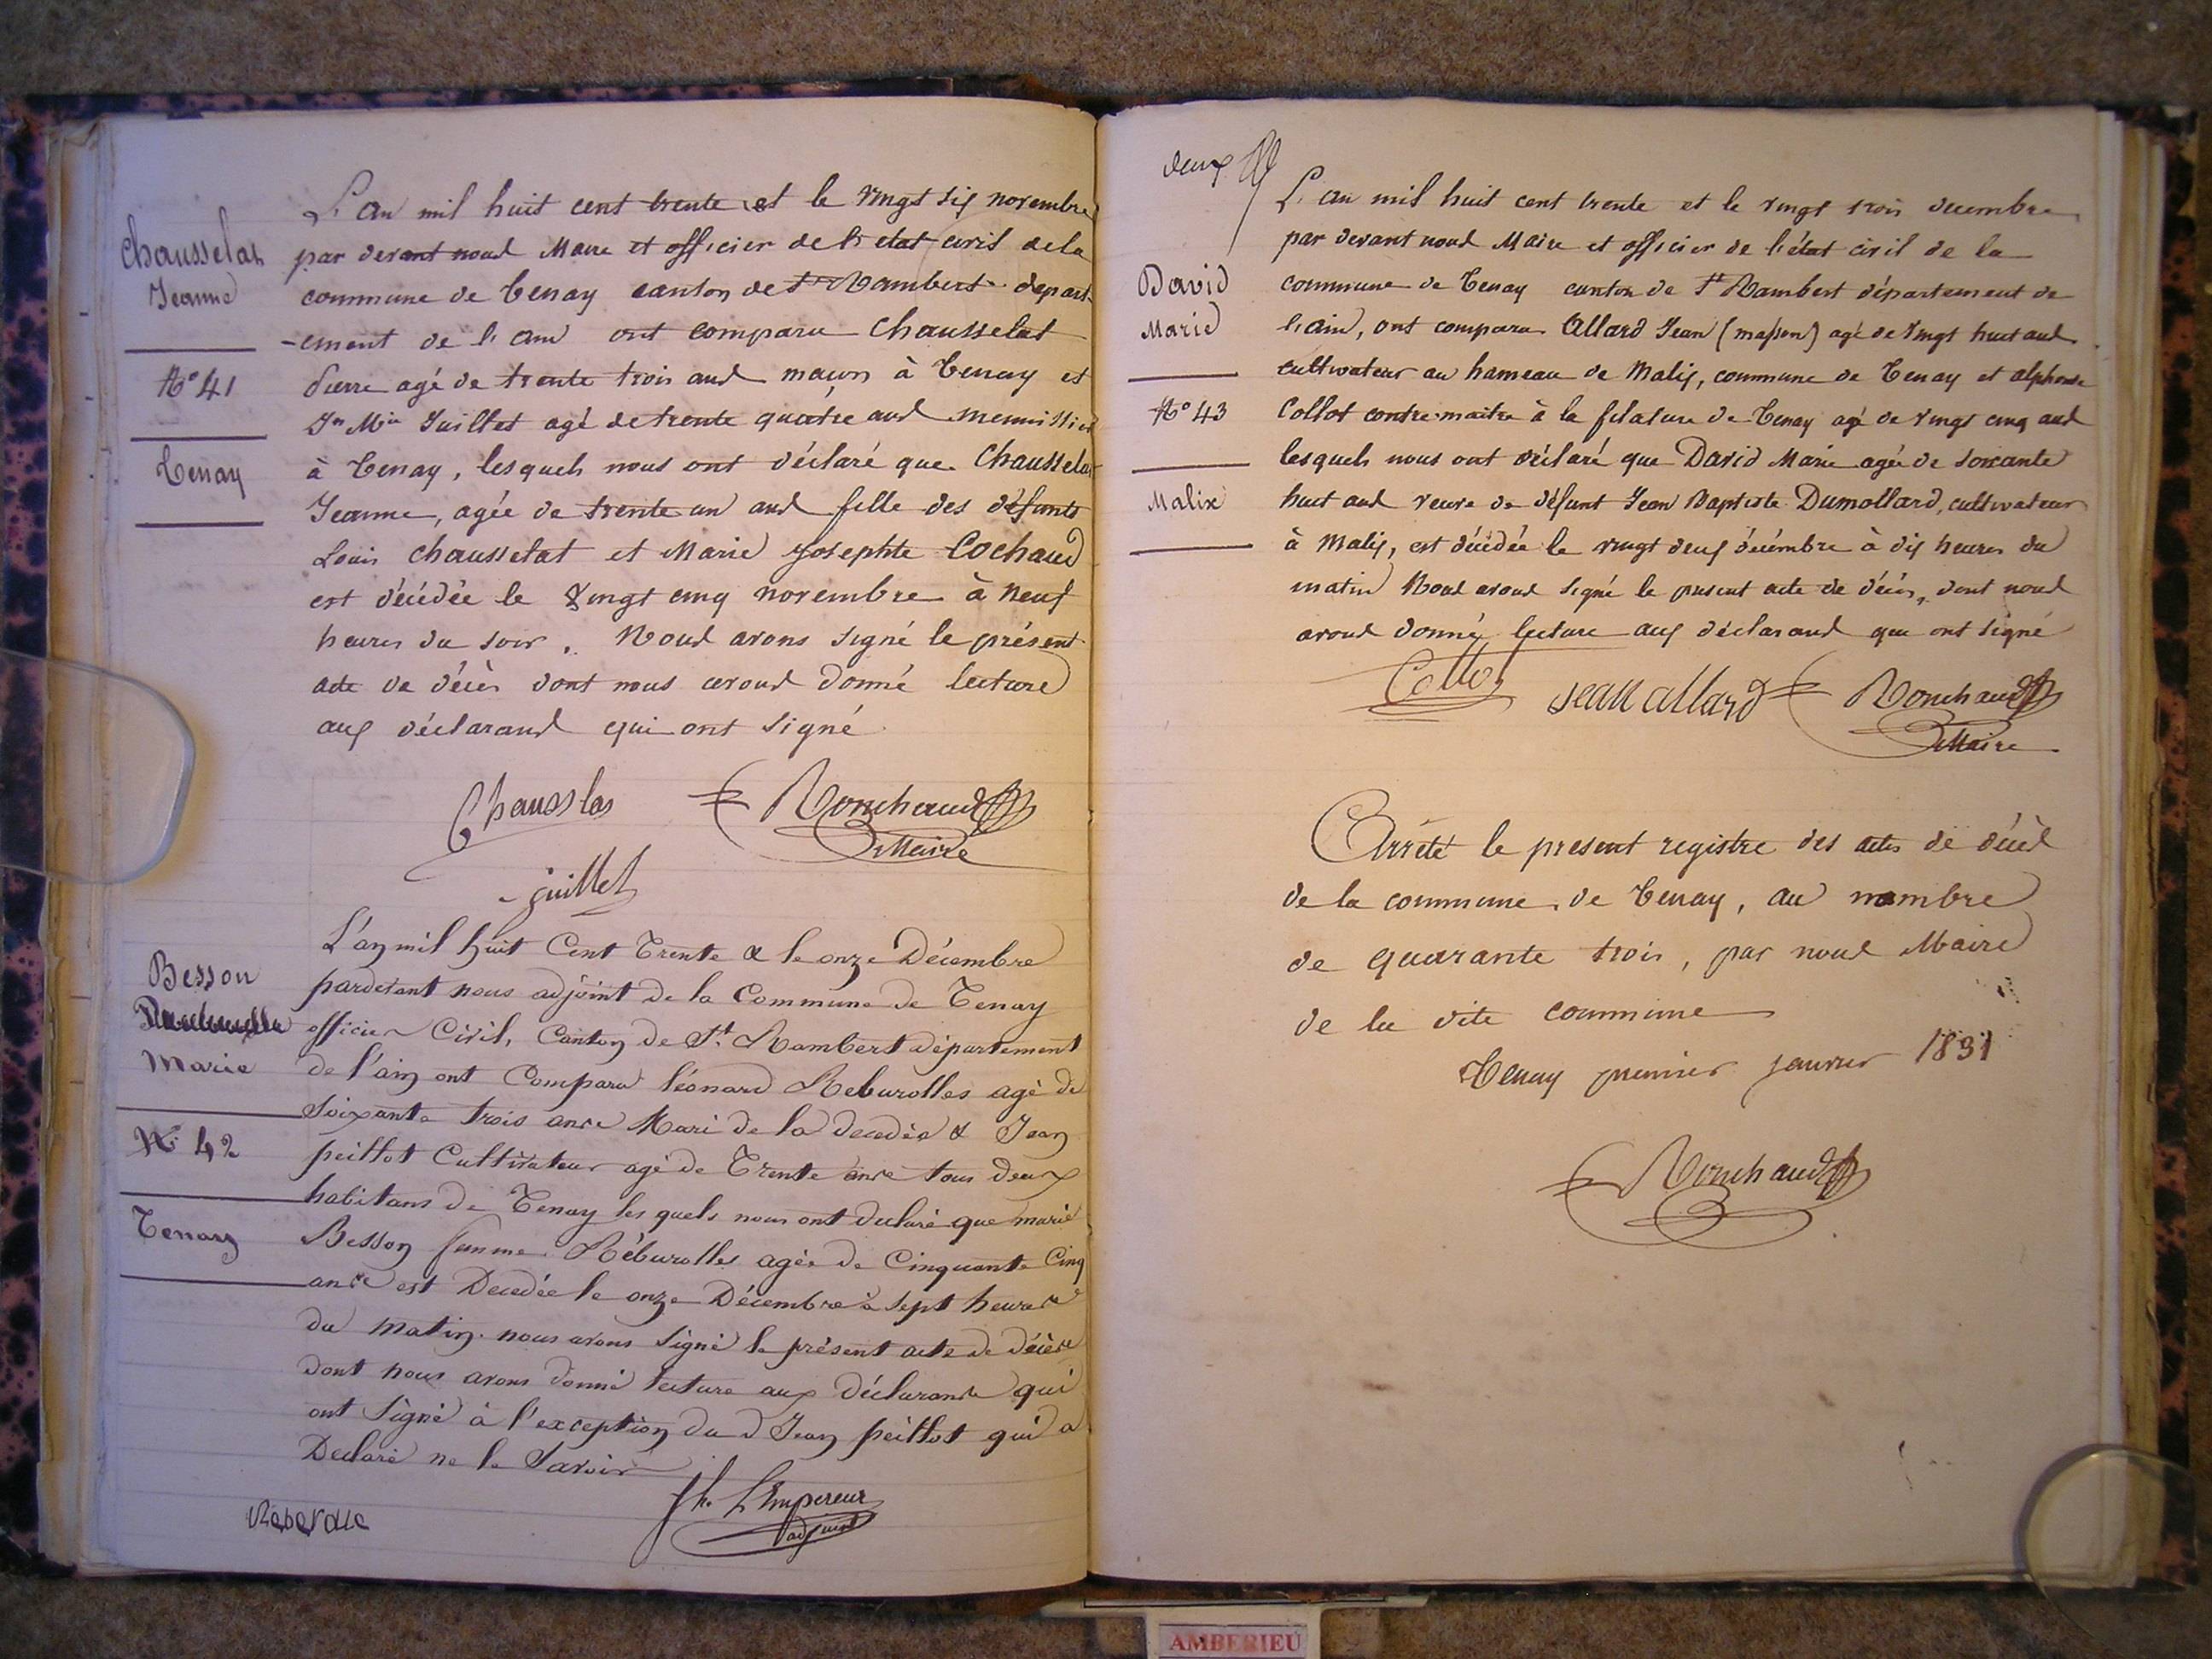 Chausselat
Jeanne
N° 41
Tenay
L'an mil huit cent trente et le vingt six novembre
par devant nous Maire et officier de l'etat civil de la
commune de Tenay canton de St Rambert depart-
-ement de l'ain ont comparu Chausselat
Pierre agé de trente trois ans maçon à Tenay et
Jn Mie Juillet agé de trente quatre ans menuisier
à Tenay, lesquels nous ont déclaré que Chausselat
Jeanne, agée de trente un ans fille des défunts
Louis Chausselat et Marie Josephte Cochaud
est décédée le vingt cinq novembre à neuf
heures du soir. Nous avons signé le présent
acte de décès dont nous avons donné lecture
aux déclarans qui ont signé
Chausslas Ronchaud
Maire
juillet
Besson
Marie
N° 42
Tenay
L'an mil huit Cent Trente & le onze Décembre
pardevant nous adjoint de la Commune de Tenay
officier Civil, Canton de St. Rambert département
de l'ain ont Comparu léonard Reburolles agé de
Soixante trois ans Mari de la decedée & Jean
peillot Cultivateur agé de Trente ans tous deux
habitans de Tenay les quels nous ont declaré que marie
Besson femme Réburolles agée de Cinquante Cinq
ans est Decedée le onze Décembre à sept heures
du matin. nous avons signé le présent acte de décès
dont nous avons donné lecture aux déclarans qui
ont signé à l'exception du d Jean peillot qui a
Declaré ne le Savoir
Reberolle
L'Empereur
adjoint
deux
David
Marie
N° 43
Malix
L'an mil huit cent trente et le vingt trois decembre
par devant nous Maire et officier de l'état civil de la
commune de Tenay canton de St Rambert département de
l'ain, ont comparu Allard Jean (masson) agé de vingt huit ans
cultivateur au hameau de Malix, commune de Tenay et alphonse
Collot contre-maitre à la filature de Tenay agé de vingt cinq ans
lesquels nous ont déclaré que David Marie agée de soixante
huit ans veuve de défunt Jean Baptiste Dumollard, cultivateur
à Malix, est décédée le vingt deux décembre à dix heures du
matin Nous avons signé le présent acte de décès, dont nous
avons donné lecture aux déclarans qui ont signé
Collot Jean allard Ronchaud
Maire
Arrêté le present registre des actes de décès
de la commune de Tenay, au nombre
de quarante trois, par nous Maire
de la dite commune
Tenay premier janvier 1831
Ronchaud
AMBERIEU